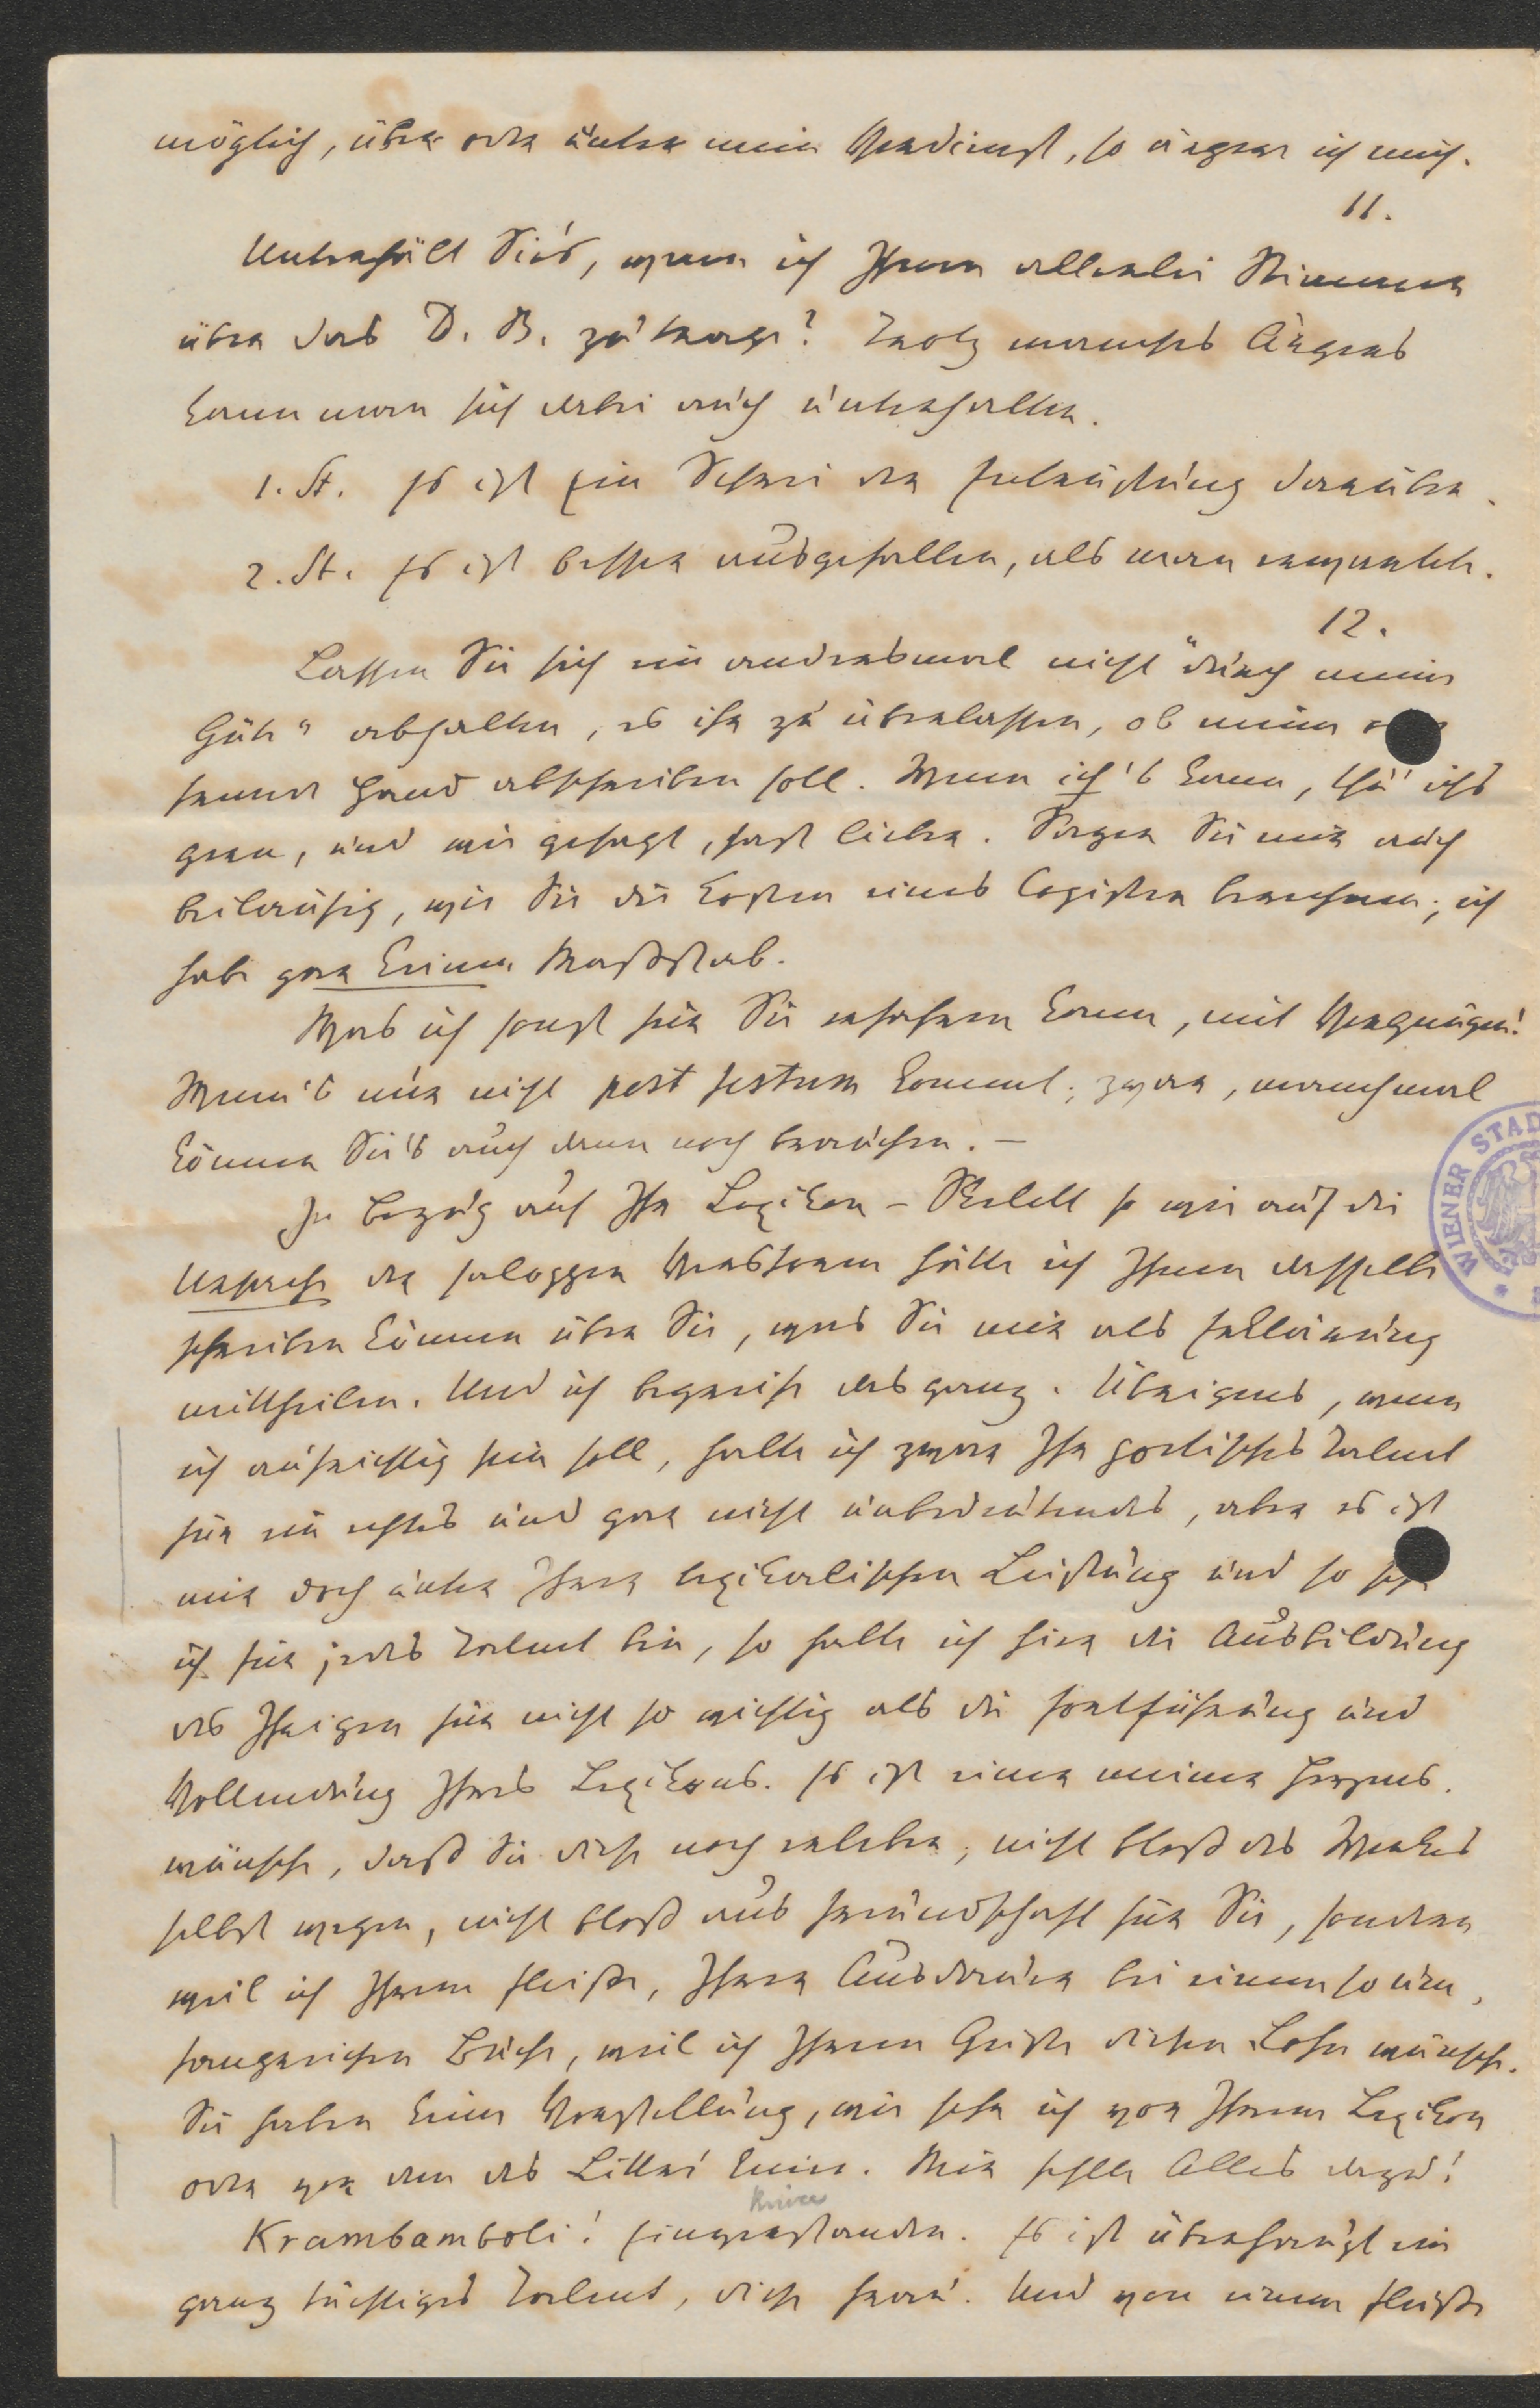 möglich, über oder unter mein Verdienst, so ärgert es mich.
11.
Unterhält Sie's, wenn ich Ihnen allerlei Stimmen
über das D. B. zutrage? Trotz manches Ärgers
kann man sich dabei auch unterhalten.
1. St. Es ist ein Schrei der Entrüstung darüber.
2. St. Es ist besser ausgefallen, als man erwartete.
12.
Lassen Sie sich ein andresmal nicht "durch meine
Güte" abhalten, es ihr zu überlassen, ob meine oder
fremde Hand abschreiben soll. Wenn ich's kann, thu' ich's
gern, und wie gesagt, fast lieber. Sagen Sie mir auch
beiläufig, wie Sie die Kosten eines Copisten berechnen; ich
habe gar keinen Maßstab.
Was ich sonst für Sie erfahren kann, mit Vergnügen!
Wenn's nur nicht post festum kommt; zwar, manchmal
können Sie's auch dann noch brauchen. –
In Bezug auf Ihr Lexikon-Skelett so wie auf die
Ursache der saloppen Versform hätte ich Ihnen dasselbe
schreiben können über Sie, was Sie mir als Erklärung
mittheilen. Und ich begreife das ganz. Übrigens, wenn
ich aufrichtig sein soll, halte ich zwar Ihr poetisches Talent
für ein echtes und gar nicht unbedeutendes, aber es ist
mir doch unter Ihrer lexikalischen Leistung und so sehr
ich für jedes Talent bin, so halte ich hier die Ausbildung
des Ihrigen für nicht so wichtig als die Fortführung und
Vollendung Ihres Lexikons. Es ist einer meiner Herzens-
wünsche, daß Sie diese noch erleben; nicht bloß des Werkes
selbst wegen, nicht bloß aus Freundschaft für Sie, sondern
weil ich Ihrem Fleiße, Ihrer Ausdauer bei einem so um-
fangreichen Buche, weil ich Ihrem Geiste diesen Lohn wünsche.
Sie haben keine Vorstellung, wie fern ich von Ihrem Lexikon
oder von dem des Littré keine. Mir fehlte Alles dazu!
Krambamboli! Einverstanden. Es ist überhaupt ein
ganz tüchtiges Talent, diese Frau. Und von einem Fleiße
WIENER STAD